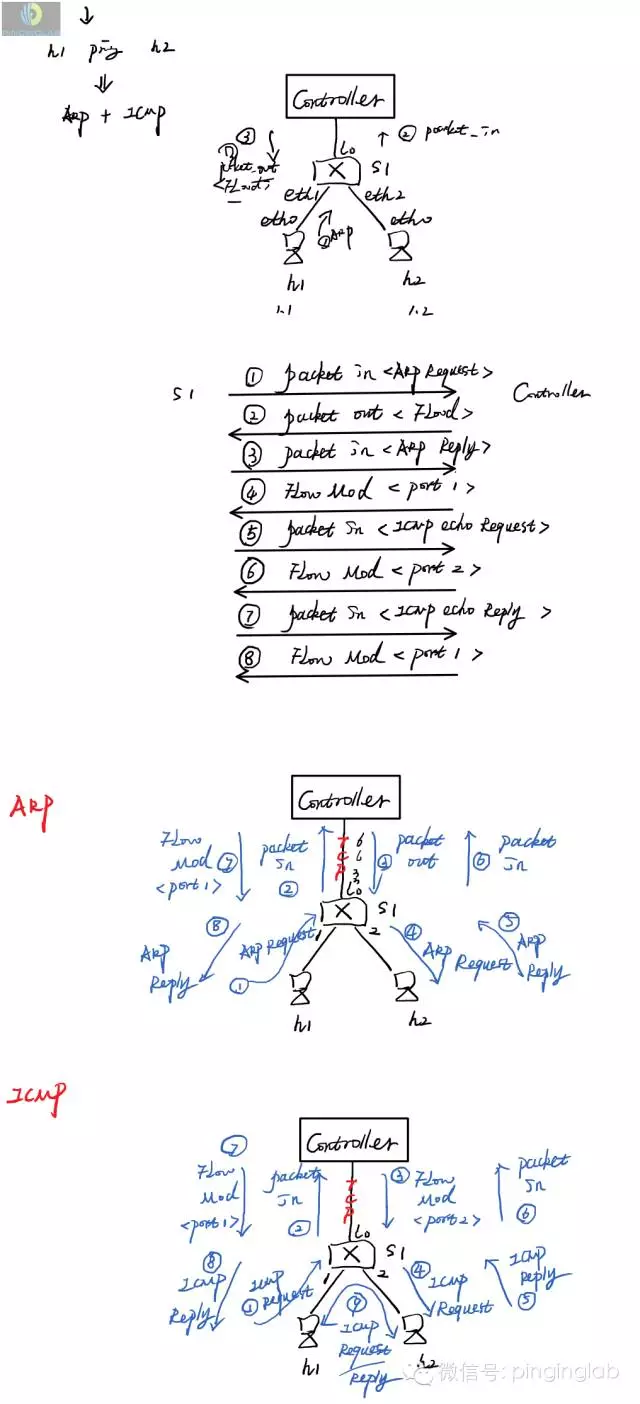 PINGINGLAB
h1 ping h2
ARP + ICMP
Controller
③
② packet_in
①
packet_out
<Flood>
Lo
S1
eth1 eth2
eth0 eth0
① ARP
h1 h2
1.1 1.2
① packet in <ARP Request>
S1 Controller
② packet out <Flood>
③ packet in <ARP Reply>
④ Flow Mod <port 1>
⑤ packet In <ICMP echo Request>
⑥ Flow Mod <port 2>
⑦ packet In <ICMP echo Reply>
⑧ Flow Mod <port 1>
ARP
Controller
Flow
Mod ⑦
<port 1>
packet
In
②
TCP
6633
③ packet
out
⑥ packet
In
Lo
S1
⑧
ARP
Reply
① ARP Request
1 2
④ ARP Request
⑤ ARP
Reply
h1 h2
ICMP
Controller
⑦
Flow
Mod
<port 1>
packet
In
②
TCP
③ Flow
Mod
<port 2>
packet
In
⑥
Lo
S1
⑧
ICMP
Reply
① ICMP
Request
1 2
④ ICMP
Request
ICMP
Reply
⑤
⑨
ICMP
Request
Reply
h1 h2
微信号: pinginglab